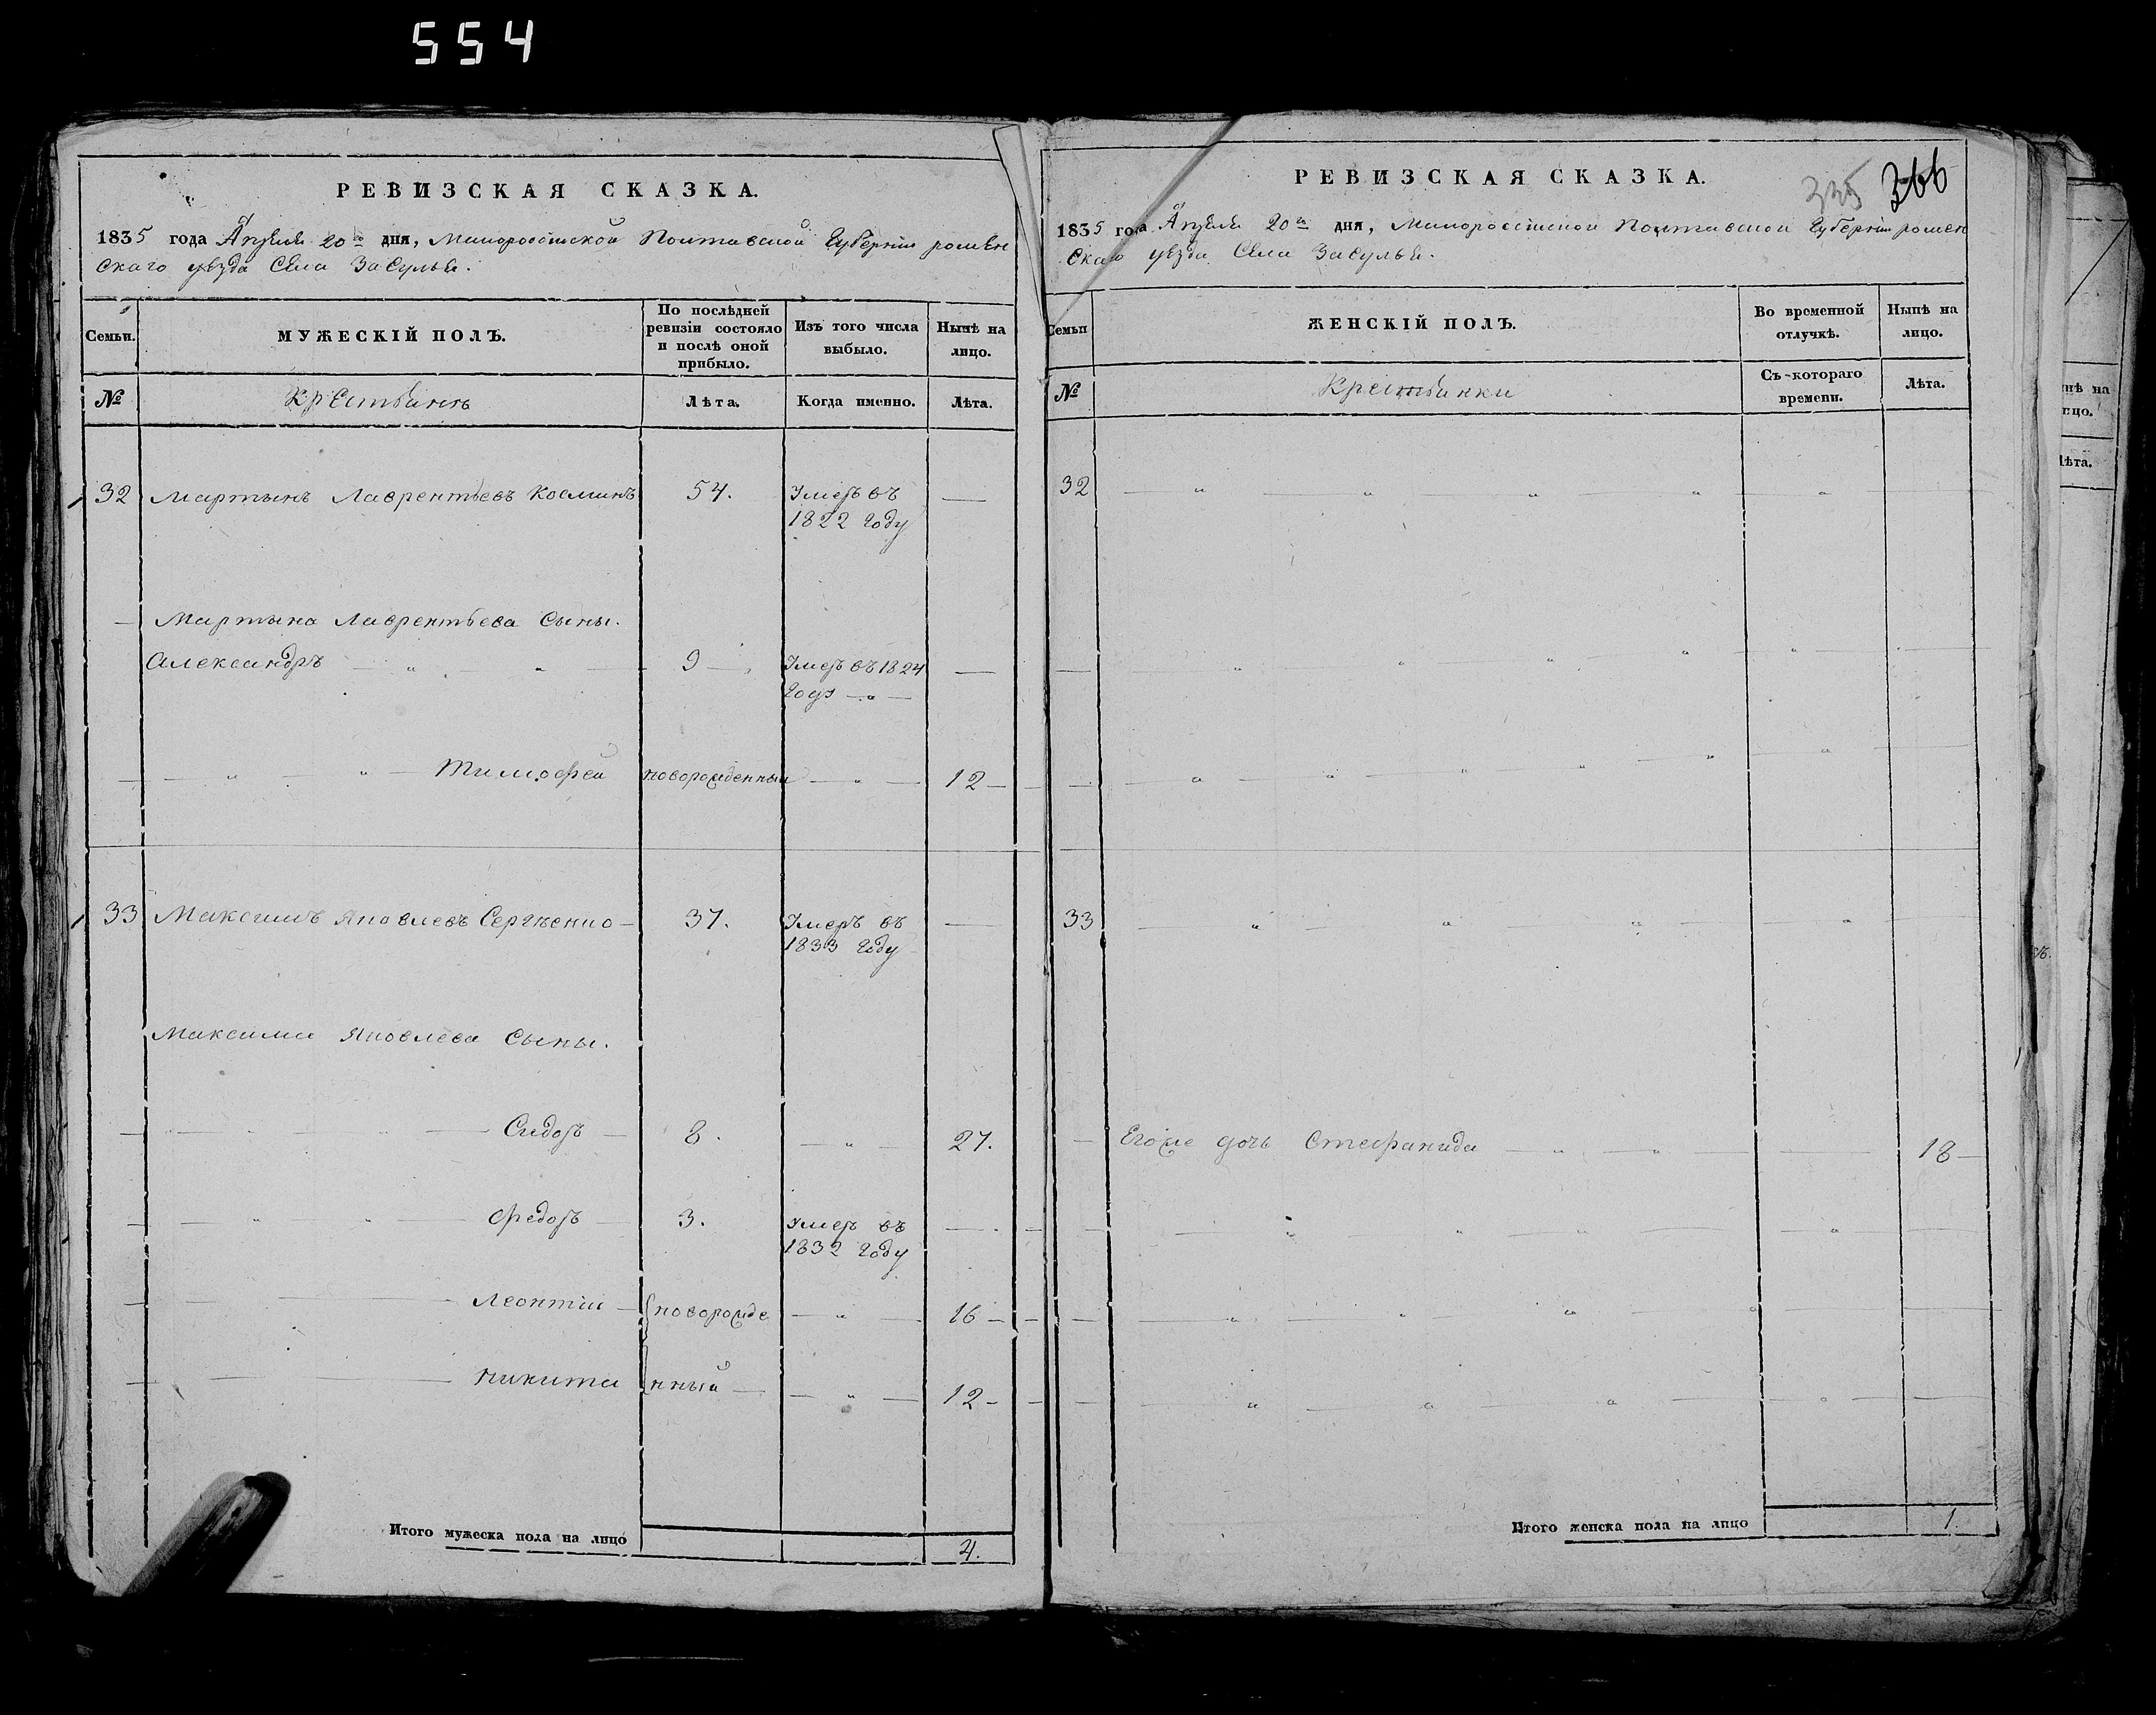 554
РЕВИЗСКАЯ СКАЗКА.
1835 года Апреля 20го дня, Малороссійской Полтавской Губерніи ромен
скаго уезда Села Засулья.
Семьи.
МУЖЕСКІЙ ПОЛЪ.
По послѣдней
ревизіи состояло
и послѣ оной
прибыло.
Изъ того числа
выбыло.
Нынѣ на
лицо.
№
Крестьянъ
Лѣта.
Когда именно.
Лѣта.
32 Мартынъ Лаврентьевъ 54. Умеръ въ —
1822 году
Мартына Лаврентьева Сыны.
Александръ — " — " — 9 — Умеръ въ 1824 —
году — " —
— " — " — Тимофей новорожденный — " — 12 —
33 Максимъ Яковлевъ Сергѣенко — 37. Умеръ въ —
1833 году
Максима Яковлева Сыны.
Сидоръ — 8. — " — 27.
Федоръ — 3. Умеръ въ —
1832 году
Леонтій — новорожде — " — 16 —
Никита нный — " — 12 —
Итого мужеска пола на лицо
4.
РЕВИЗСКАЯ СКАЗКА.
335 366
1835 года Апреля 20го дня, Малороссійской Полтавской Губерніи ромен
скаго уезда Села Засулья.
Семьи
ЖЕНСКІЙ ПОЛЪ.
Во временной
отлучкѣ.
Нынѣ на
лицо.
№
Крестьянки
Съ-котораго
времени.
Лѣта.
32
33
Егоже дочь Стефанида — " — " — 18 —
Итого женска пола на лицо
1.
нѣ на
цо.
Лѣта.